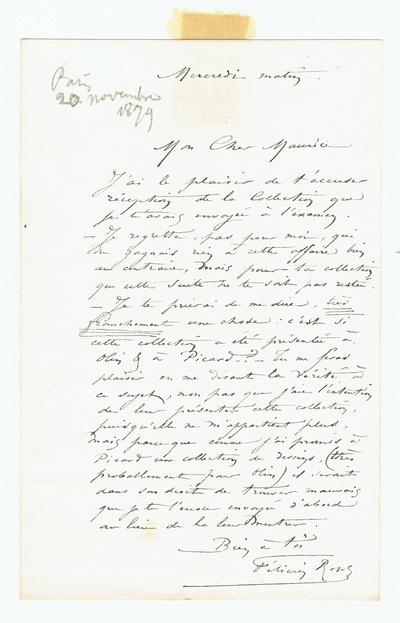 Mercredi matin.
Paris
20 novembre
1879
Mon Cher Maurice
J'ai le plaisir de t'accuser
réception de la Collection que
je t'avais envoyée à l'examen.
— Je regrette, pas pour moi, qui
ne gagnais rien à cette affaire bien
au contraire, mais pour ta collection
que cette suite ne te soit pas restée.
— Je te prierai de me dire, très
franchement une chose : c'est si
cette collection a été présentée à
Olin & à Picard? — Tu me feras
plaisir en me disant la vérité à
ce sujet, non pas que j'aie l'intention
de leur présenter cette collection,
puisqu'elle ne m'appartient plus,
mais parce que comme j'ai promis à
Picard une collection de dessins, (très
probablement pour Olin) il serait
dans son droit de trouver mauvais
que je te l'eusse envoyée d'abord
au lieu de la leur montrer.
Bien à toi
Félicien Rops